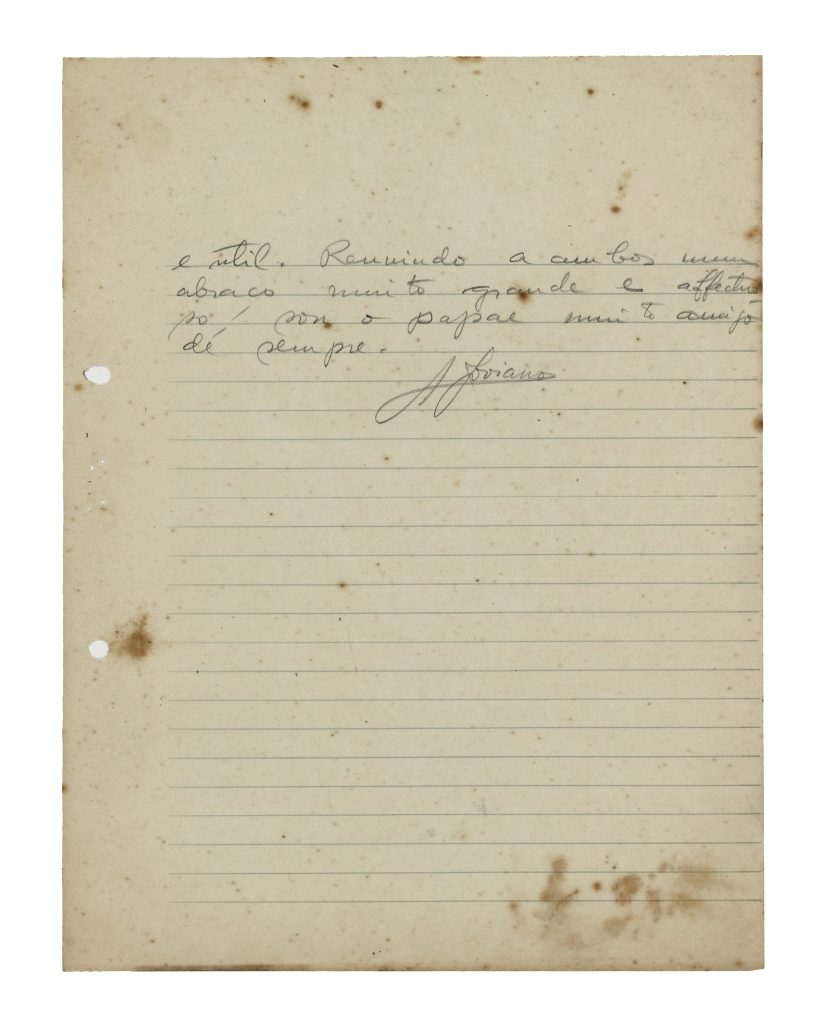 e util. Reunindo a ambos num
abraço muito grande e affectuo
so, sou o papae muito amigo
de sempre.
A Joviano